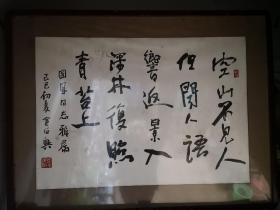 空山不見人
但聞人語
響返景入
深林復照
青苔上
同志雅屬
己巳初夏